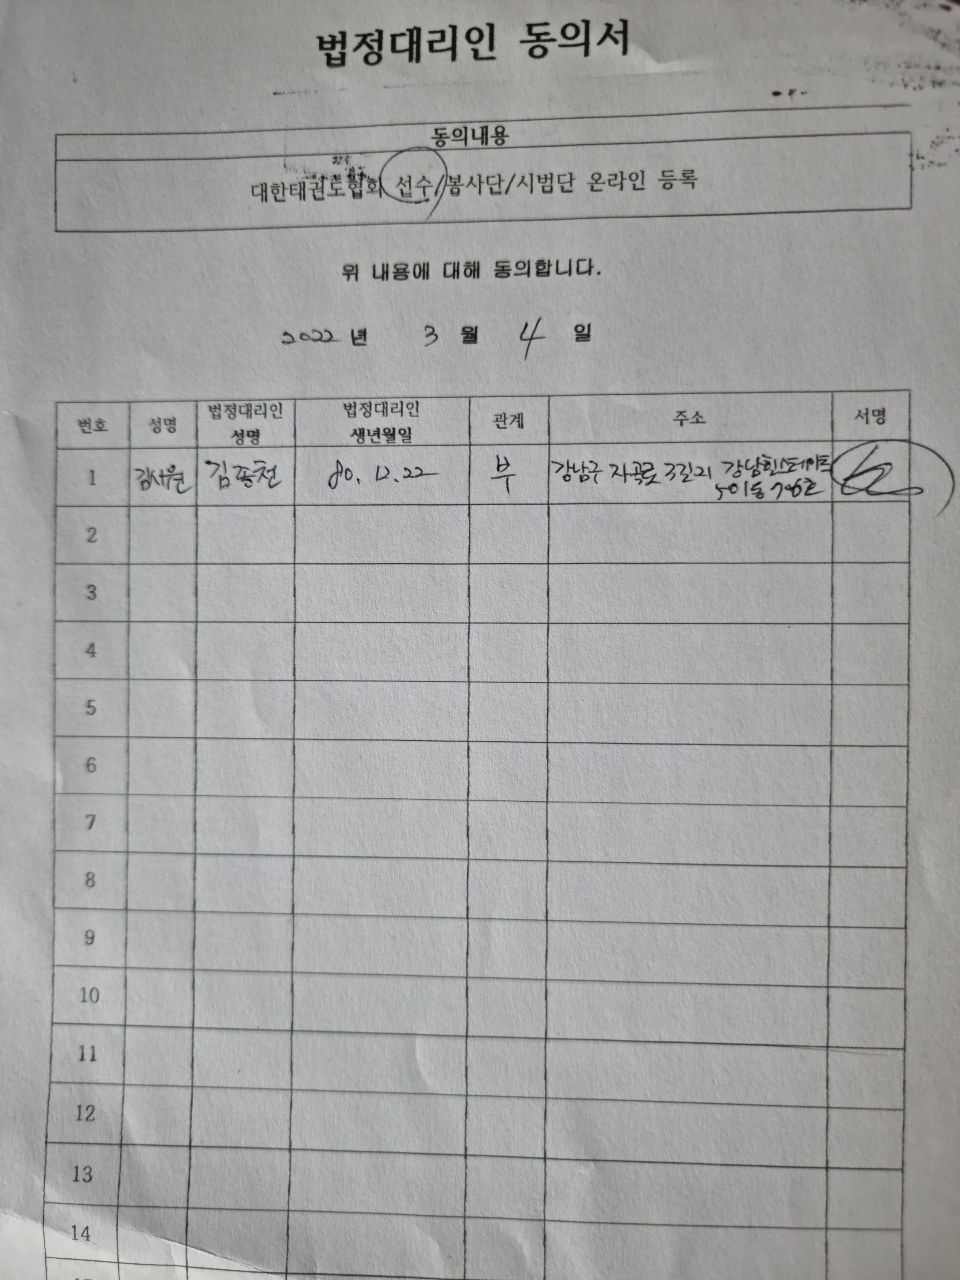 법정대리인 동의서
동의내용
대한태권도협회 선수/봉사단/시범단 온라인 등록
위 내용에 대해 동의합니다.
2022 년 3 월 4 일
번호 성명 법정대리인 성명 법정대리인 생년월일 관계 주소 서명
1 김서원 김종천 80. 12. 22 부 강남구 자곡로 3길21 강남힐스테이트
501동 706호
2
3
4
5
6
7
8
9
10
11
12
13
14